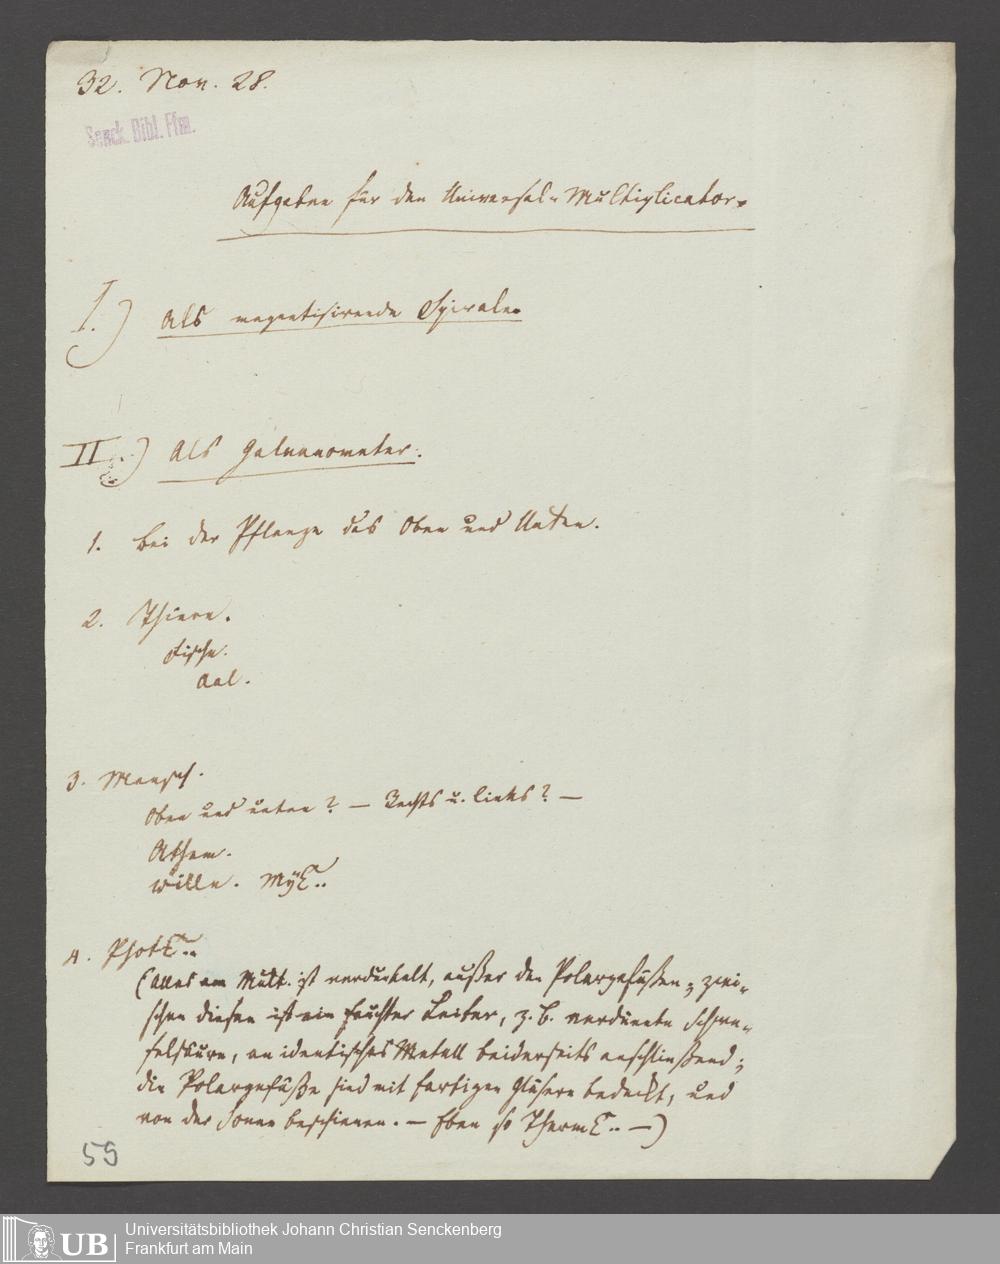 32. Nov. 28.
Senck. Bibl. Ffm.
Aufgaben für den Universal-Multiplicator.
I.) Als magnetisirende Spirale.
II.) Als Galvanometer.
1. Bei der Pflanze das Oben und Unten.
2. Thiere.
Fische.
Aal.
3. Mensch.
Oben und unten? — Rechts u. links? —
Athem.
Wille.
4.
(Alles am Mult. ist verdunkelt, außer den Polargefäßen; zwi-
schen diesen ist ein feuchter Leiter, z. B. verdünnte Schwe-
felsäure, an identisches Metall beiderseits anschließend;
die Polargefäße sind mit farbigen Gläsern bedeckt, und
von der Sonne beschienen. — Eben so —)
59
UB
Universitätsbibliothek Johann Christian Senckenberg
Frankfurt am Main